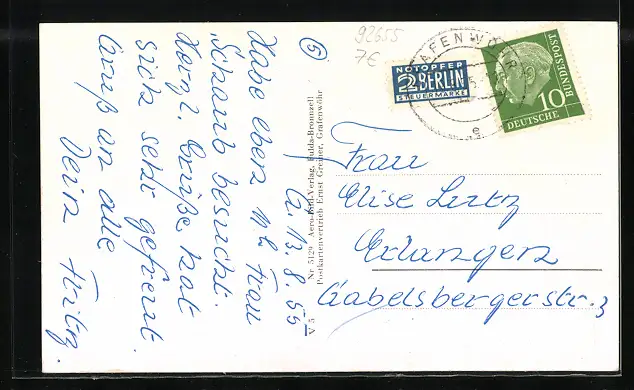 92655
7€
⑤
G. 13.8.55
Habe eben mit Frau
Schaub besucht.
Herzl. Grüße hat
sich sehr gefreut
Gruß an alle
Dein Fritz.
Nr 5129 Aero-Bild-Verlag, Fulda-Bronnzell
Postkartenvertrieb Ernst Greiner, Grafenwöhr
V 5
AFENWÖHR
e
NOTOPFER
2 BERLIN
STEUERMARKE
DEUTSCHE
BUNDESPOST
10
Frau
Elise Lutz
Erlangen
Gabelsbergerstr. 3